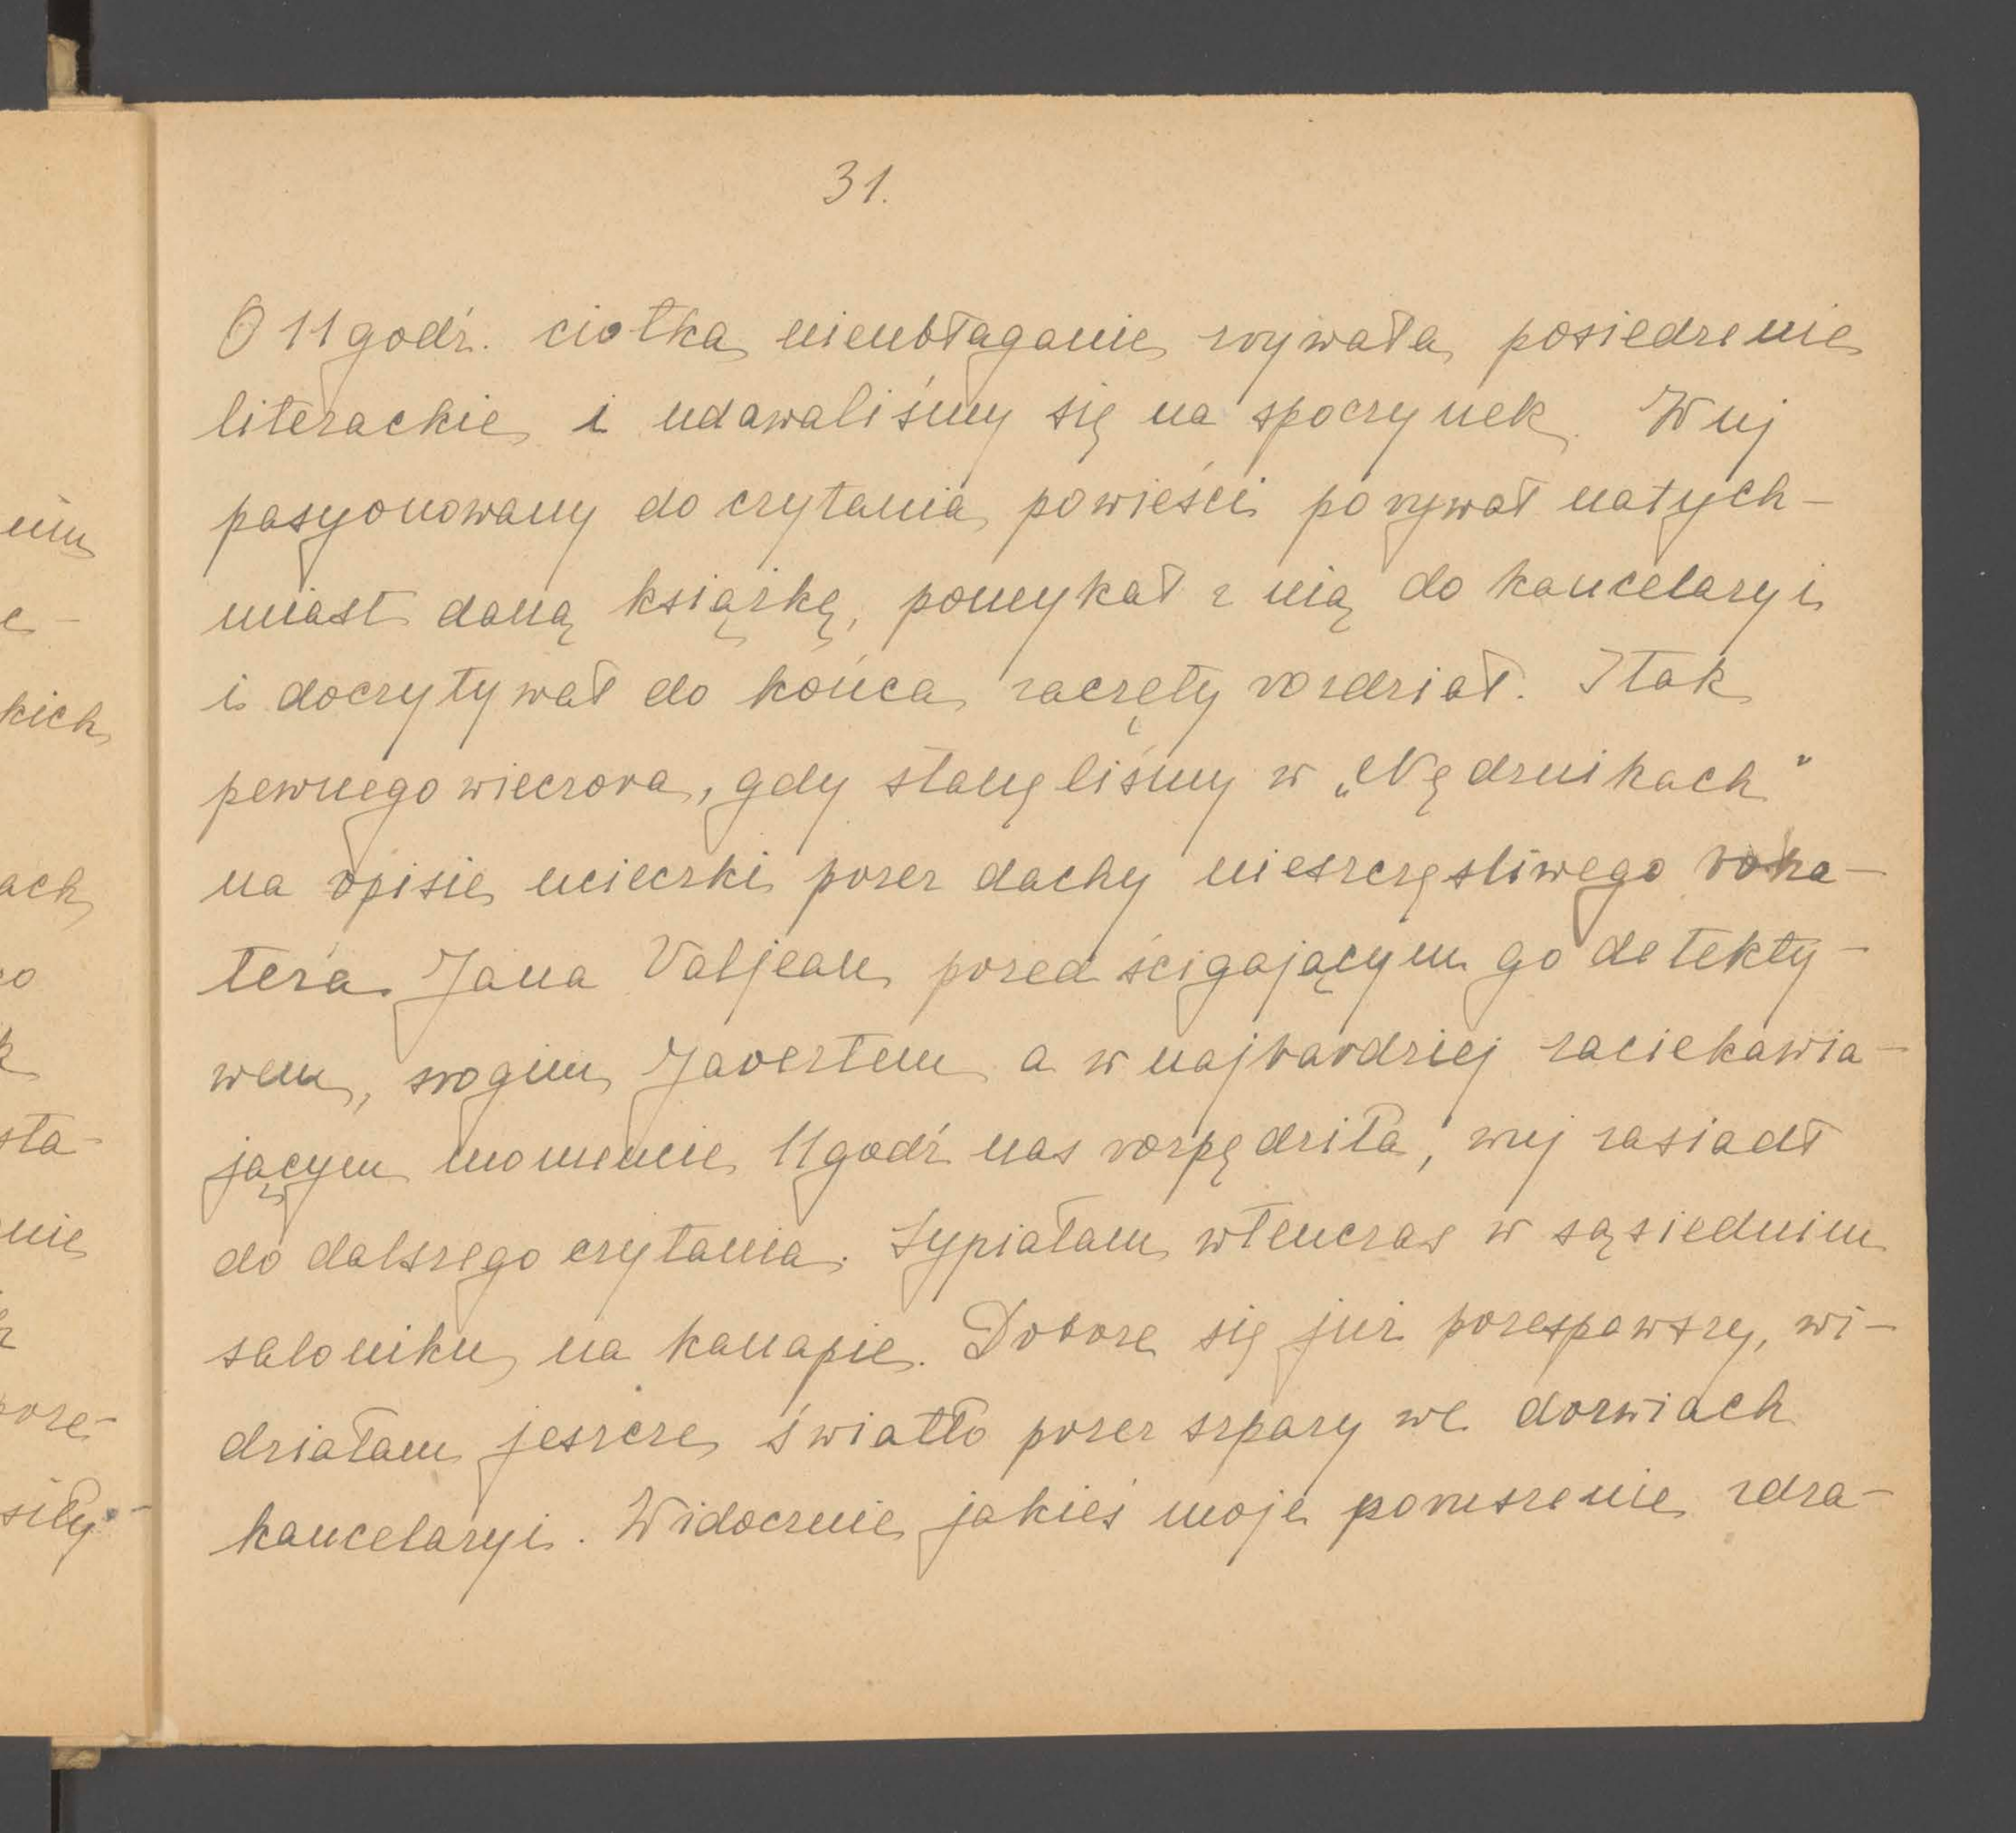 31.
O 11 godź. ciotka nieubłaganie zrywała posiedzenie
literackie i udawaliśmy się na spoczynek. Wuj
pasyonowany do czytania powieści porywał natych-
miast daną książkę, pomykał z nią do kancelaryi
i doczytywał do końca zaczęty rozdział. I tak
pewnego wieczora, gdy stanęliśmy w „Nędznikach”
na opisie ucieczki przez dachy nieszczęsliwego boha-
tera Jana Valjean przed ścigającym go detekty-
wem, srogim Javertem a w najbardziej zaciekawia-
jącym momencie 11 godź nas rozpędziła, wuj zasiadł
do dalszego czytania. Sypiałam wtenczas w sąsiednim
saloniku na kanapie. Dobrze się już przespawszy, wi-
działam jeszcze światło przez szpary we drzwiach
kancelaryi. Widocznie jakieś moje poruszenie zdra-
nim
e-
kich
ach
sta-
nie
prze-
siły-